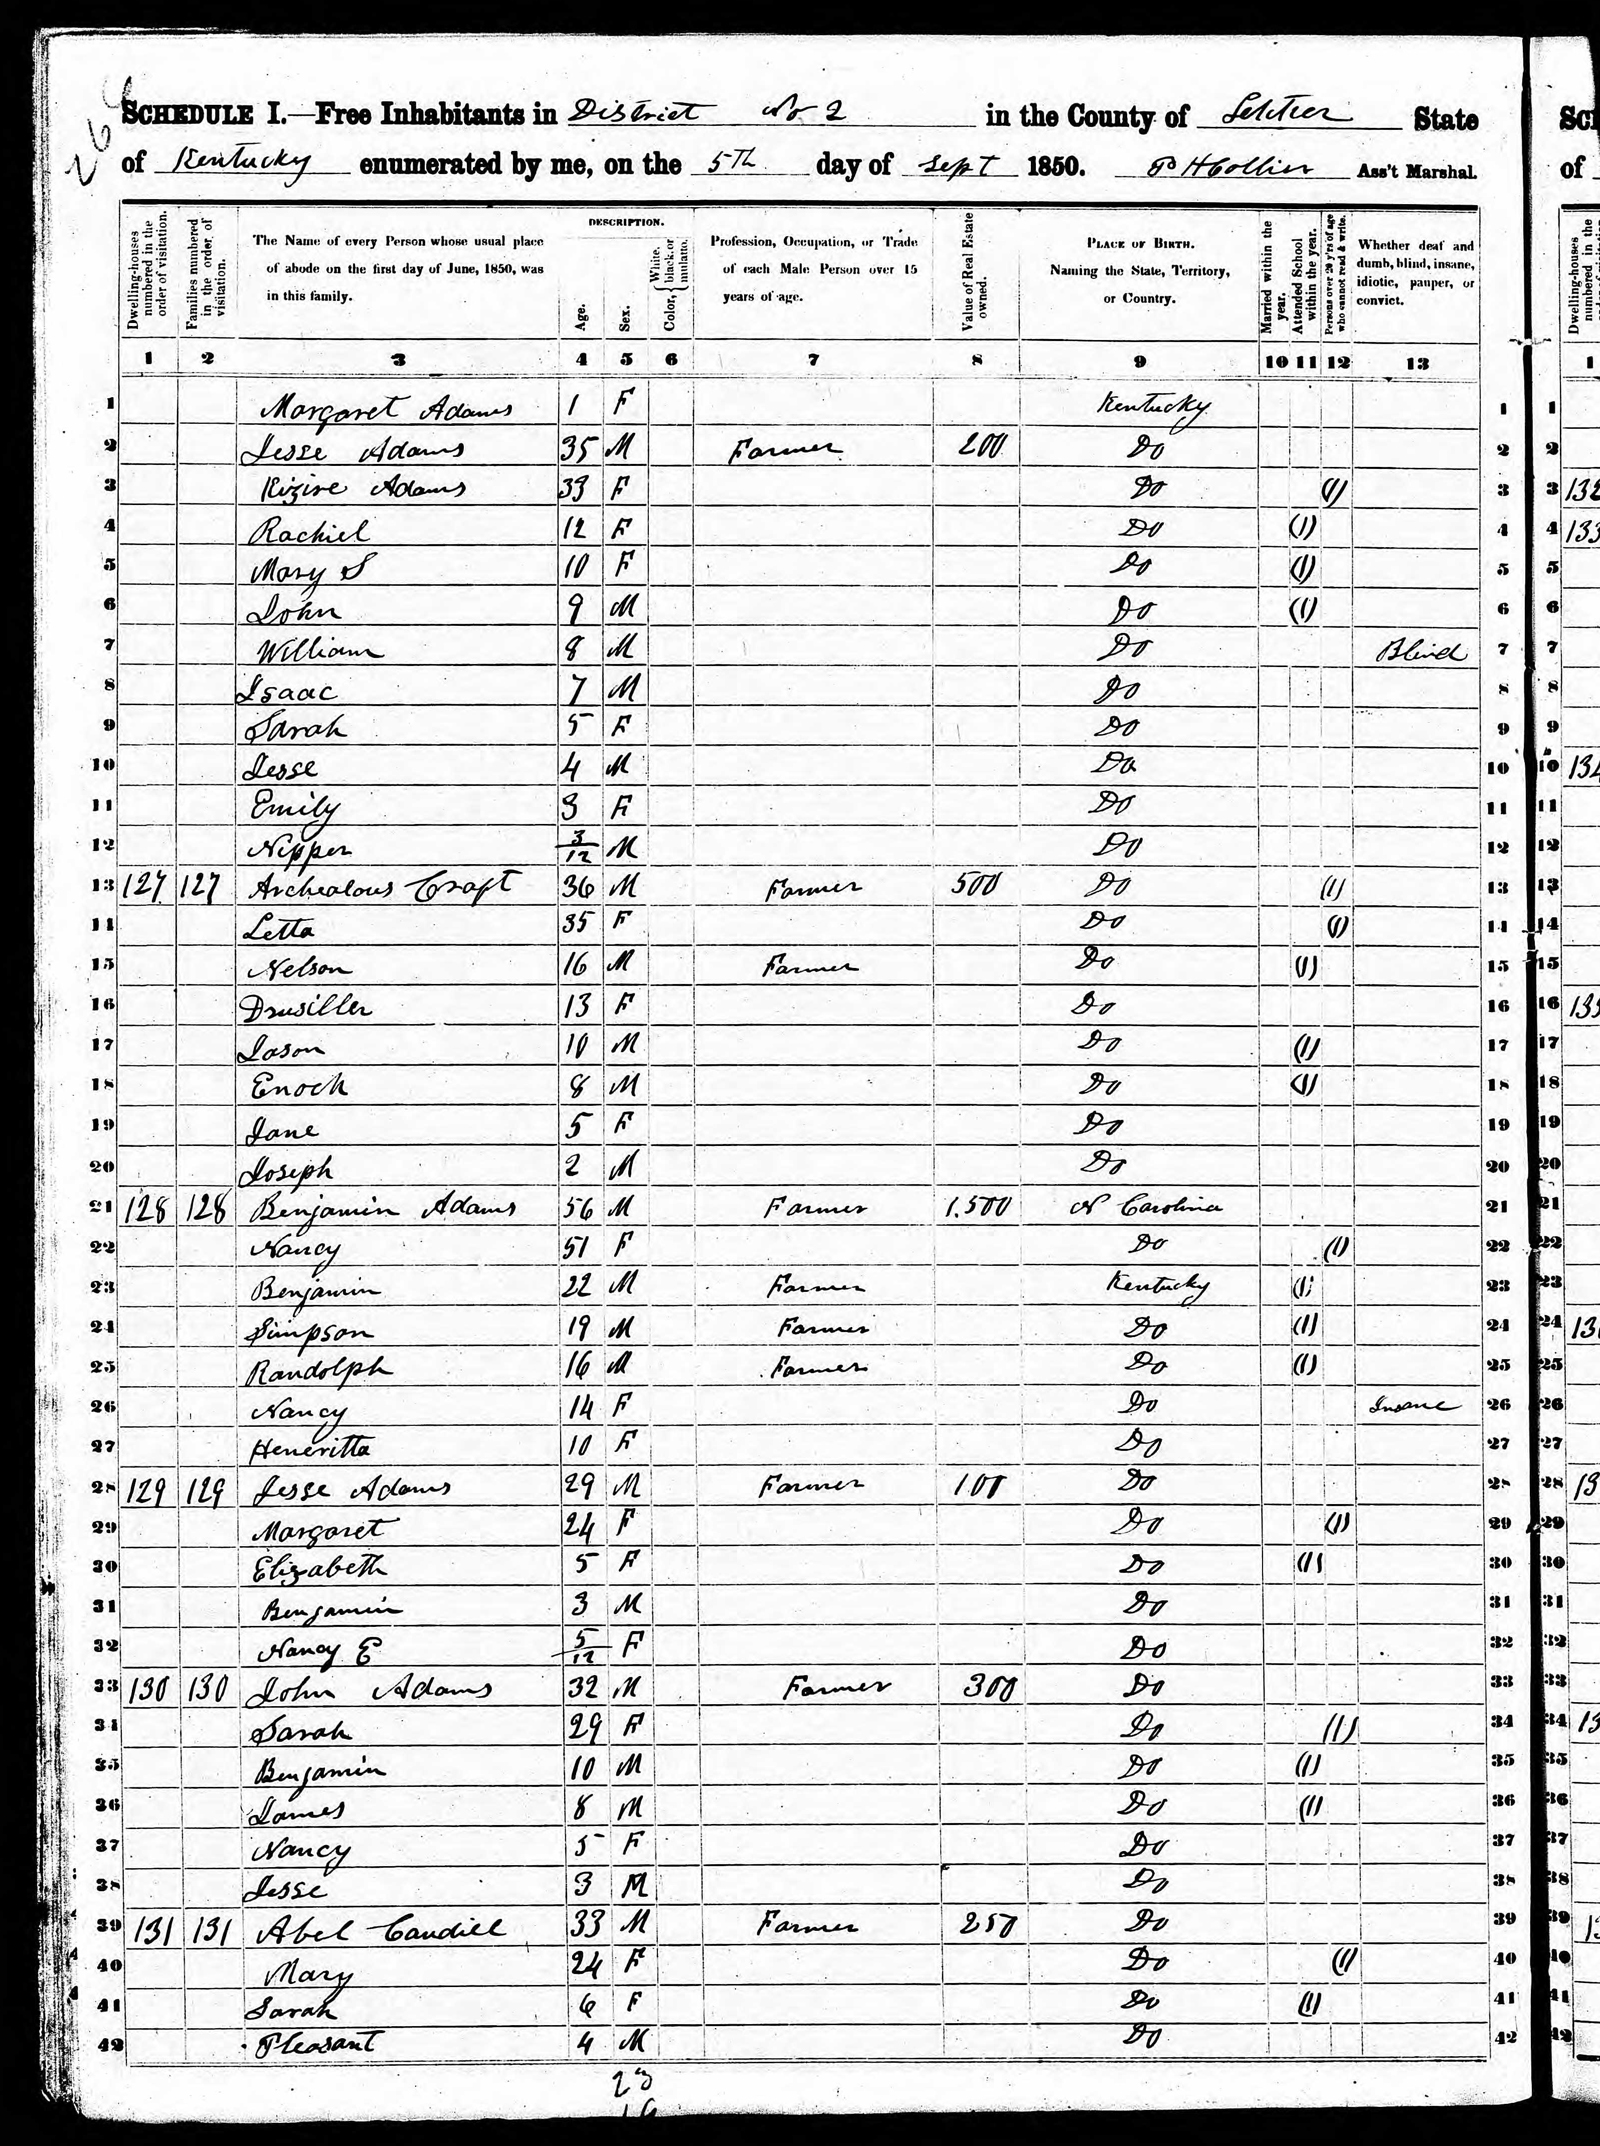 SCHEDULE I.—Free Inhabitants in District No 2 in the County of Letcher State
of Kentucky enumerated by me, on the 5th day of Sept 1850. P H Collier Ass't Marshal.
Dwelling-houses numbered in the order of visitation.
Families numbered in the order of visitation.
The Name of every Person whose usual place of abode on the first day of June, 1850, was in this family.
DESCRIPTION.
Age.
Sex.
Color, White, black, or mulatto.
Profession, Occupation, or Trade of each Male Person over 15 years of age.
Value of Real Estate owned.
PLACE OF BIRTH. Naming the State, Territory, or Country.
Married within the year.
Attended School within the year.
Persons over 20 y'rs of age who cannot read & write.
Whether deaf and dumb, blind, insane, idiotic, pauper, or convict.
1 2 3 4 5 6 7 8 9 10 11 12 13
1 Margaret Adams 1 F Kentucky 1
2 Jesse Adams 35 M Farmer 200 Do 2
3 Kizire Adams 33 F Do (1) 3
4 Rachiel 12 F Do (1) 4
5 Mary S 10 F Do (1) 5
6 John 9 M Do (1) 6
7 William 8 M Do Blind 7
8 Isaac 7 M Do 8
9 Sarah 5 F Do 9
10 Jesse 4 M Do 10
11 Emily 3 F Do 11
12 Nipper 3/12 M Do 12
13 127 127 Archealous Craft 36 M Farmer 500 Do (1) 13
14 Letta 35 F Do (1) 14
15 Nelson 16 M Farmer Do (1) 15
16 Drusiller 13 F Do 16
17 Jason 10 M Do (1) 17
18 Enoch 8 M Do (1) 18
19 Jane 5 F Do 19
20 Joseph 2 M Do 20
21 128 128 Benjamin Adams 56 M Farmer 1.500 N Carolina 21
22 Nancy 51 F Do (1) 22
23 Benjamin 22 M Farmer Kentucky (1) 23
24 Simpson 19 M Farmer Do (1) 24
25 Randolph 16 M Farmer Do (1) 25
26 Nancy 14 F Do Insane 26
27 Heneritta 10 F Do 27
28 129 129 Jesse Adams 29 M Farmer 100 Do 28
29 Margaret 24 F Do (1) 29
30 Elizabeth 5 F Do (1) 30
31 Benjamin 3 M Do 31
32 Nancy E 5/12 F Do 32
33 130 130 John Adams 32 M Farmer 300 Do 33
34 Sarah 29 F Do (1) 34
35 Benjamin 10 M Do (1) 35
36 James 8 M Do (1) 36
37 Nancy 5 F Do 37
38 Jesse 3 M Do 38
39 131 131 Abel Caudill 33 M Farmer 250 Do 39
40 Mary 24 F Do (1) 40
41 Sarah 6 F Do (1) 41
42 Pleasant 4 M Do 42
23
19